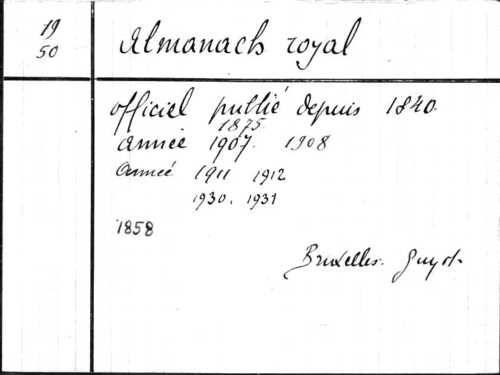 19
50
Almanach royal
officiel publié depuis 1840.
1875
année 1907. 1908
Année 1911 1912
1930. 1931
1858
Bruxelles. Guyot.